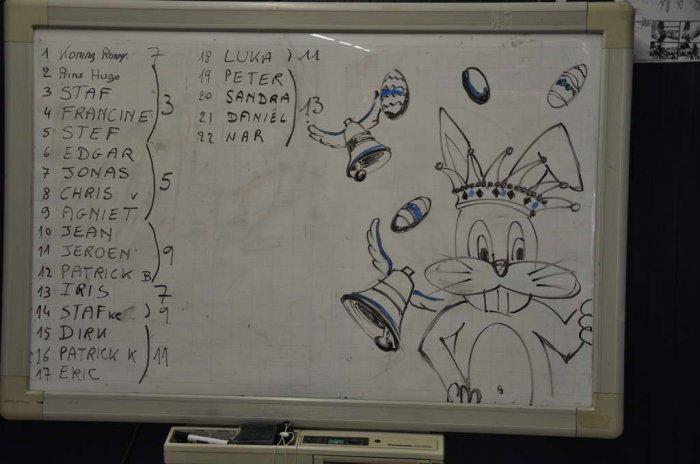 1 Koning Ronny 7
2 Prins Hugo
3 STAF
4 FRANCINE
3
5 STEF
6 EDGAR
7 JONAS
8 CHRIS v
5
9 AGNIET
10 JEAN
11 JEROEN
9
12 PATRICK B
13 IRIS 7
14 STAFke ) 9
15 DIRK
16 PATRICK K
11
17 ERIC
18 LUKA ) 11
19 PETER
20 SANDRA
13
21 DANIËL
22 NAR
Panasonic